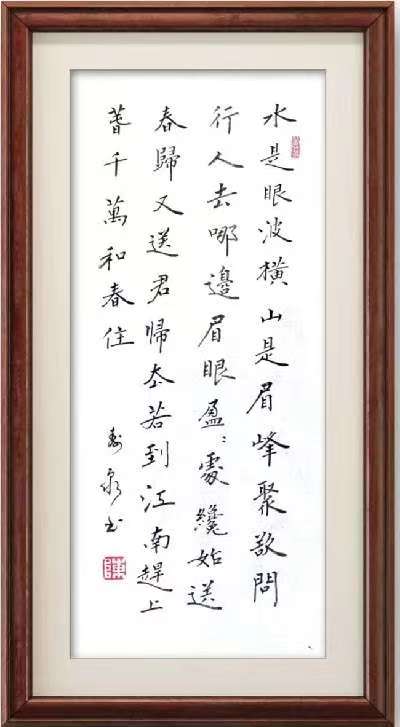 水是眼波橫山是眉峰聚欲問
行人去哪邊眉眼盈〻處纔始送
春歸又送君歸去若到江南趕上
萅千萬和春住
寿泉书